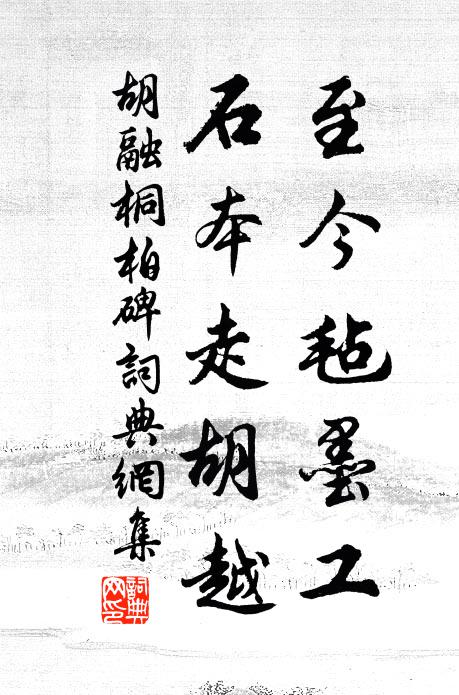 至今毡墨工
石本走胡越
胡融桐柏碑詞典網集
詞典网印